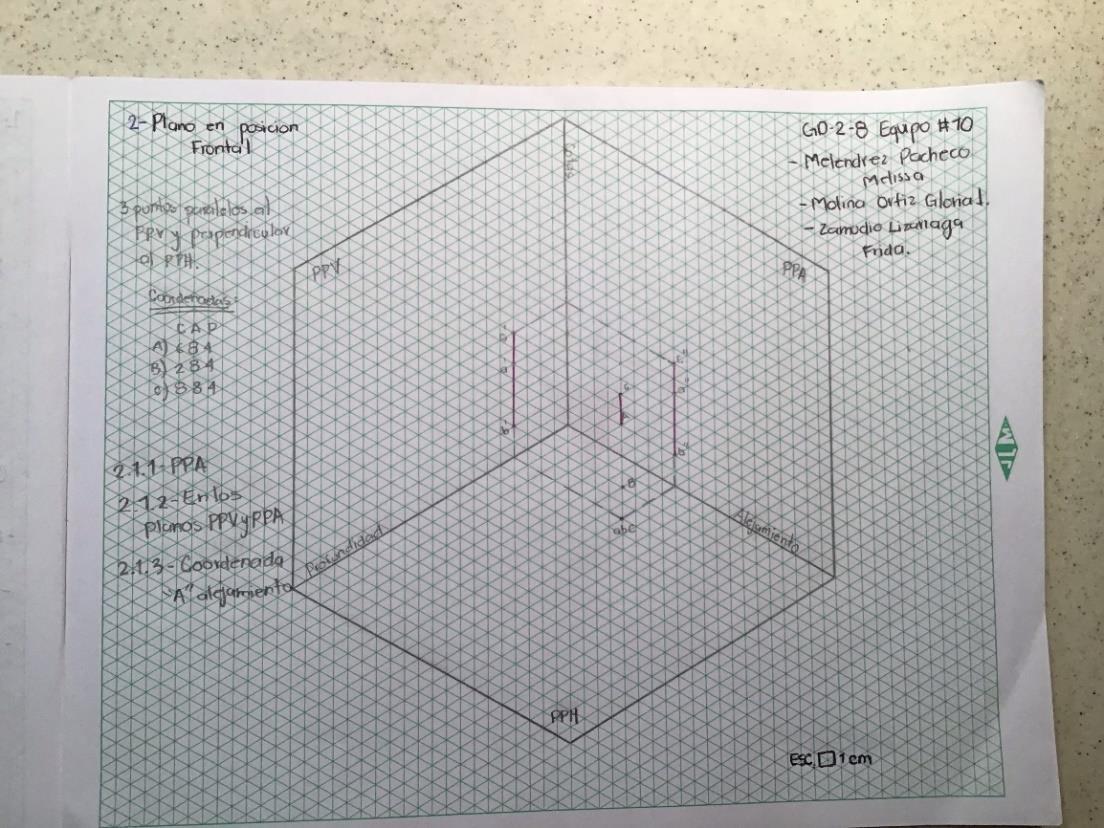 2- Plano en posicion
Frontal
3 puntos paralelos al
PPV y perpendicular
al PPH.
Coordenadas:
C A P
A) 6 8 4
B) 2 8 4
C) 8 8 4
2.1.1- PPA
2.1.2- En los
planos PPV y PPA
2.1.3- Coordenada
"A" alejamiento
GD-2-8 Equipo #10
- Melendrez Pacheco
Melissa
- Molina Ortiz Gloria I.
- Zamudio Lizarraga
Frida.
PPV
PPA
a'
b'
c"
a"
b"
c
B
abc
Profundidad
Alejamiento
PPH
ESC. 1cm
JLM